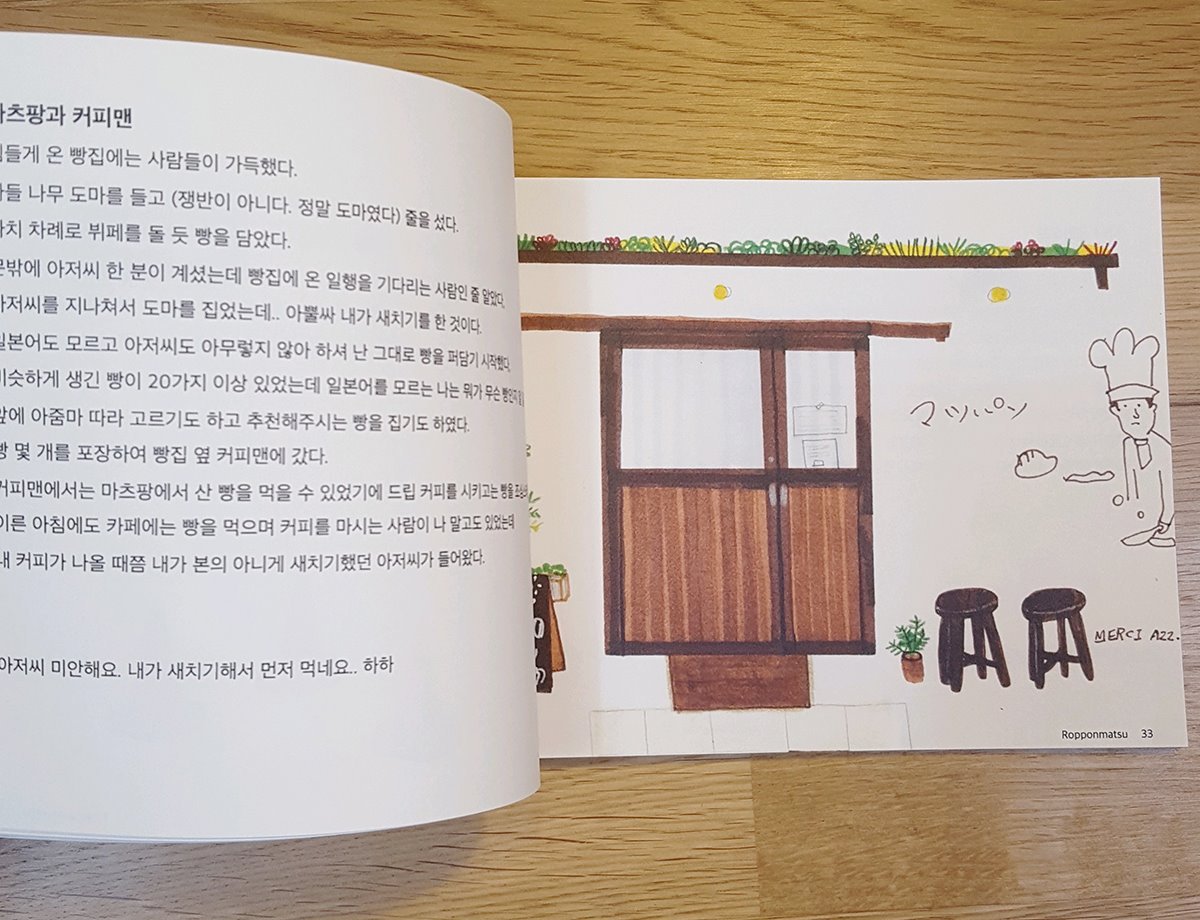 마츠팡과 커피맨
힘들게 온 빵집에는 사람들이 가득했다.
다들 나무 도마를 들고 (쟁반이 아니다. 정말 도마였다) 줄을 섰다.
마치 차례로 뷔페를 돌 듯 빵을 담았다.
문밖에 아저씨 한 분이 계셨는데 빵집에 온 일행을 기다리는 사람인 줄 알았다.
아저씨를 지나쳐서 도마를 집었는데.. 아뿔싸 내가 새치기를 한 것이다.
일본어도 모르고 아저씨도 아무렇지 않아 하셔 난 그대로 빵을 퍼담기 시작했다.
비슷하게 생긴 빵이 20가지 이상 있었는데 일본어를 모르는 나는 뭐가 무슨 빵인지
앞에 아줌마 따라 고르기도 하고 추천해주시는 빵을 집기도 하였다.
빵 몇 개를 포장하여 빵집 옆 커피맨에 갔다.
커피맨에서는 마츠팡에서 산 빵을 먹을 수 있었기에 드립 커피를 시키고는 빵을
이른 아침에도 카페에는 빵을 먹으며 커피를 마시는 사람이 나 말고도 있었는데
내 커피가 나올 때쯤 내가 본의 아니게 새치기했던 아저씨가 들어왔다.
아저씨 미안해요. 내가 새치기해서 먼저 먹네요.. 하하
マツパン
MERCI AZZ.
Ropponmatsu 33